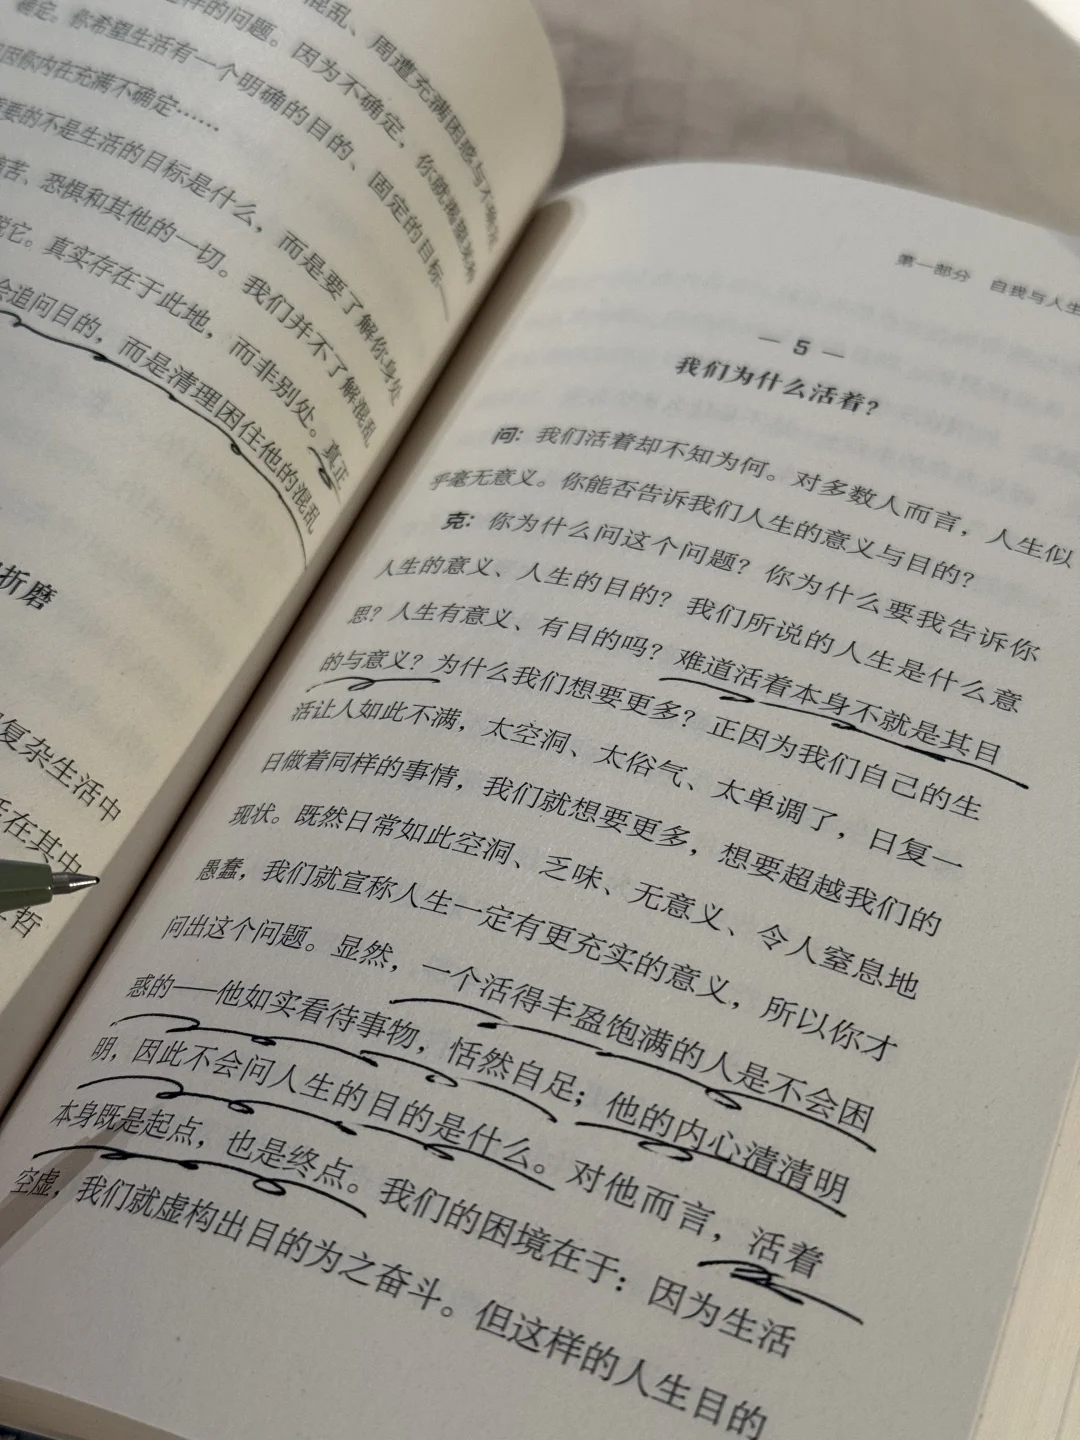 混乱、周遭充满困惑与不确定
样的问题。因为不确定，你就渴望某种
确定。你希望生活有一个明确的目的、固定的目标——
因你内在充满不确定……
要的不是生活的目标是什么，而是要了解你身处
痛苦、恐惧和其他的一切。我们并不了解混乱
脱它。真实存在于此地，而非别处。真正
会追问目的，而是清理困住他的混乱
折磨
复杂生活中
活在其中
哲
第一部分 自我与人生
— 5 —
我们为什么活着？
问：我们活着却不知为何。对多数人而言，人生似
乎毫无意义。你能否告诉我们人生的意义与目的？
克：你为什么问这个问题？你为什么要我告诉你
人生的意义、人生的目的？我们所说的人生是什么意
思？人生有意义、有目的吗？难道活着本身不就是其目
的与意义？为什么我们想要更多？正因为我们自己的生
活让人如此不满，太空洞、太俗气、太单调了，日复一
日做着同样的事情，我们就想要更多，想要超越我们的
现状。既然日常如此空洞、乏味、无意义、令人窒息地
愚蠢，我们就宣称人生一定有更充实的意义，所以你才
问出这个问题。显然，一个活得丰盈饱满的人是不会困
惑的——他如实看待事物，恬然自足；他的内心清清明
明，因此不会问人生的目的是什么。对他而言，活着
本身既是起点，也是终点。我们的困境在于：因为生活
空虚，我们就虚构出目的为之奋斗。但这样的人生目的